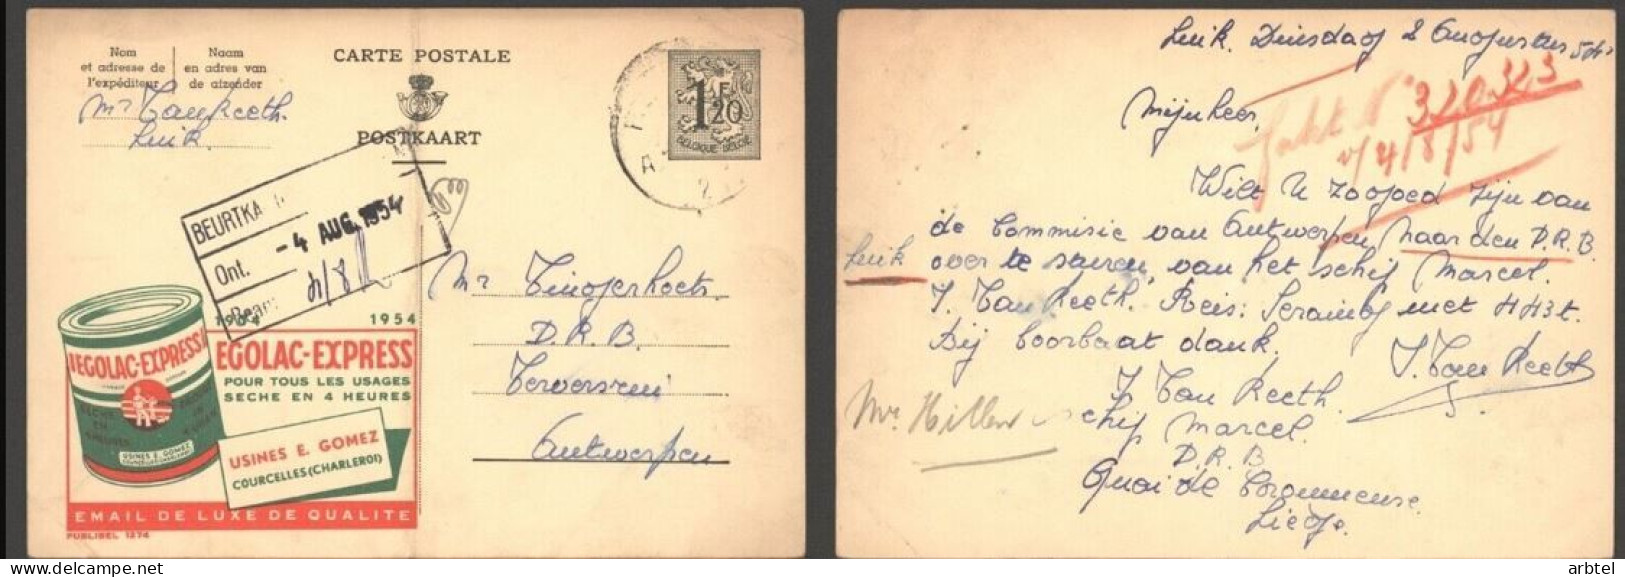 Nom
et adresse de
l'expéditeur
Naam
en adres van
de afzender
CARTE POSTALE
POSTKAART
1F20
BELGIQUE-BELGIË
Mr Van Reeth.
Luik.
BEURTKA
Ont. - 4 AUG. 1954
4/8
Mr
D.R.B.
Antwerpen
1904 1954
EGOLAC-EXPRESS
POUR TOUS LES USAGES
SECHE EN 4 HEURES
VEGOLAC-EXPRESS
SECHE
EN
4 HEURES
USINES E. GOMEZ
USINES E. GOMEZ
COURCELLES (CHARLEROI)
EMAIL DE LUXE DE QUALITE
PUBLIBEL 1274
Luik. Dinsdag 2 Augustus 54.
Mijnheer,
320.323
4/8/54
Wilt U zoo goed zijn van
de Commisie van Antwerpen naar den D.R.B.
Luik over te sturen, van het schip Marcel.
J. Van Reeth. Reis: Seraing met HH3t.
Bij Voorbaat dank.
J. Van Reeth
J. Van Reeth.
schip Marcel.
D.R.B.
Quai de Coronmeuse.
Liege.
arbtel